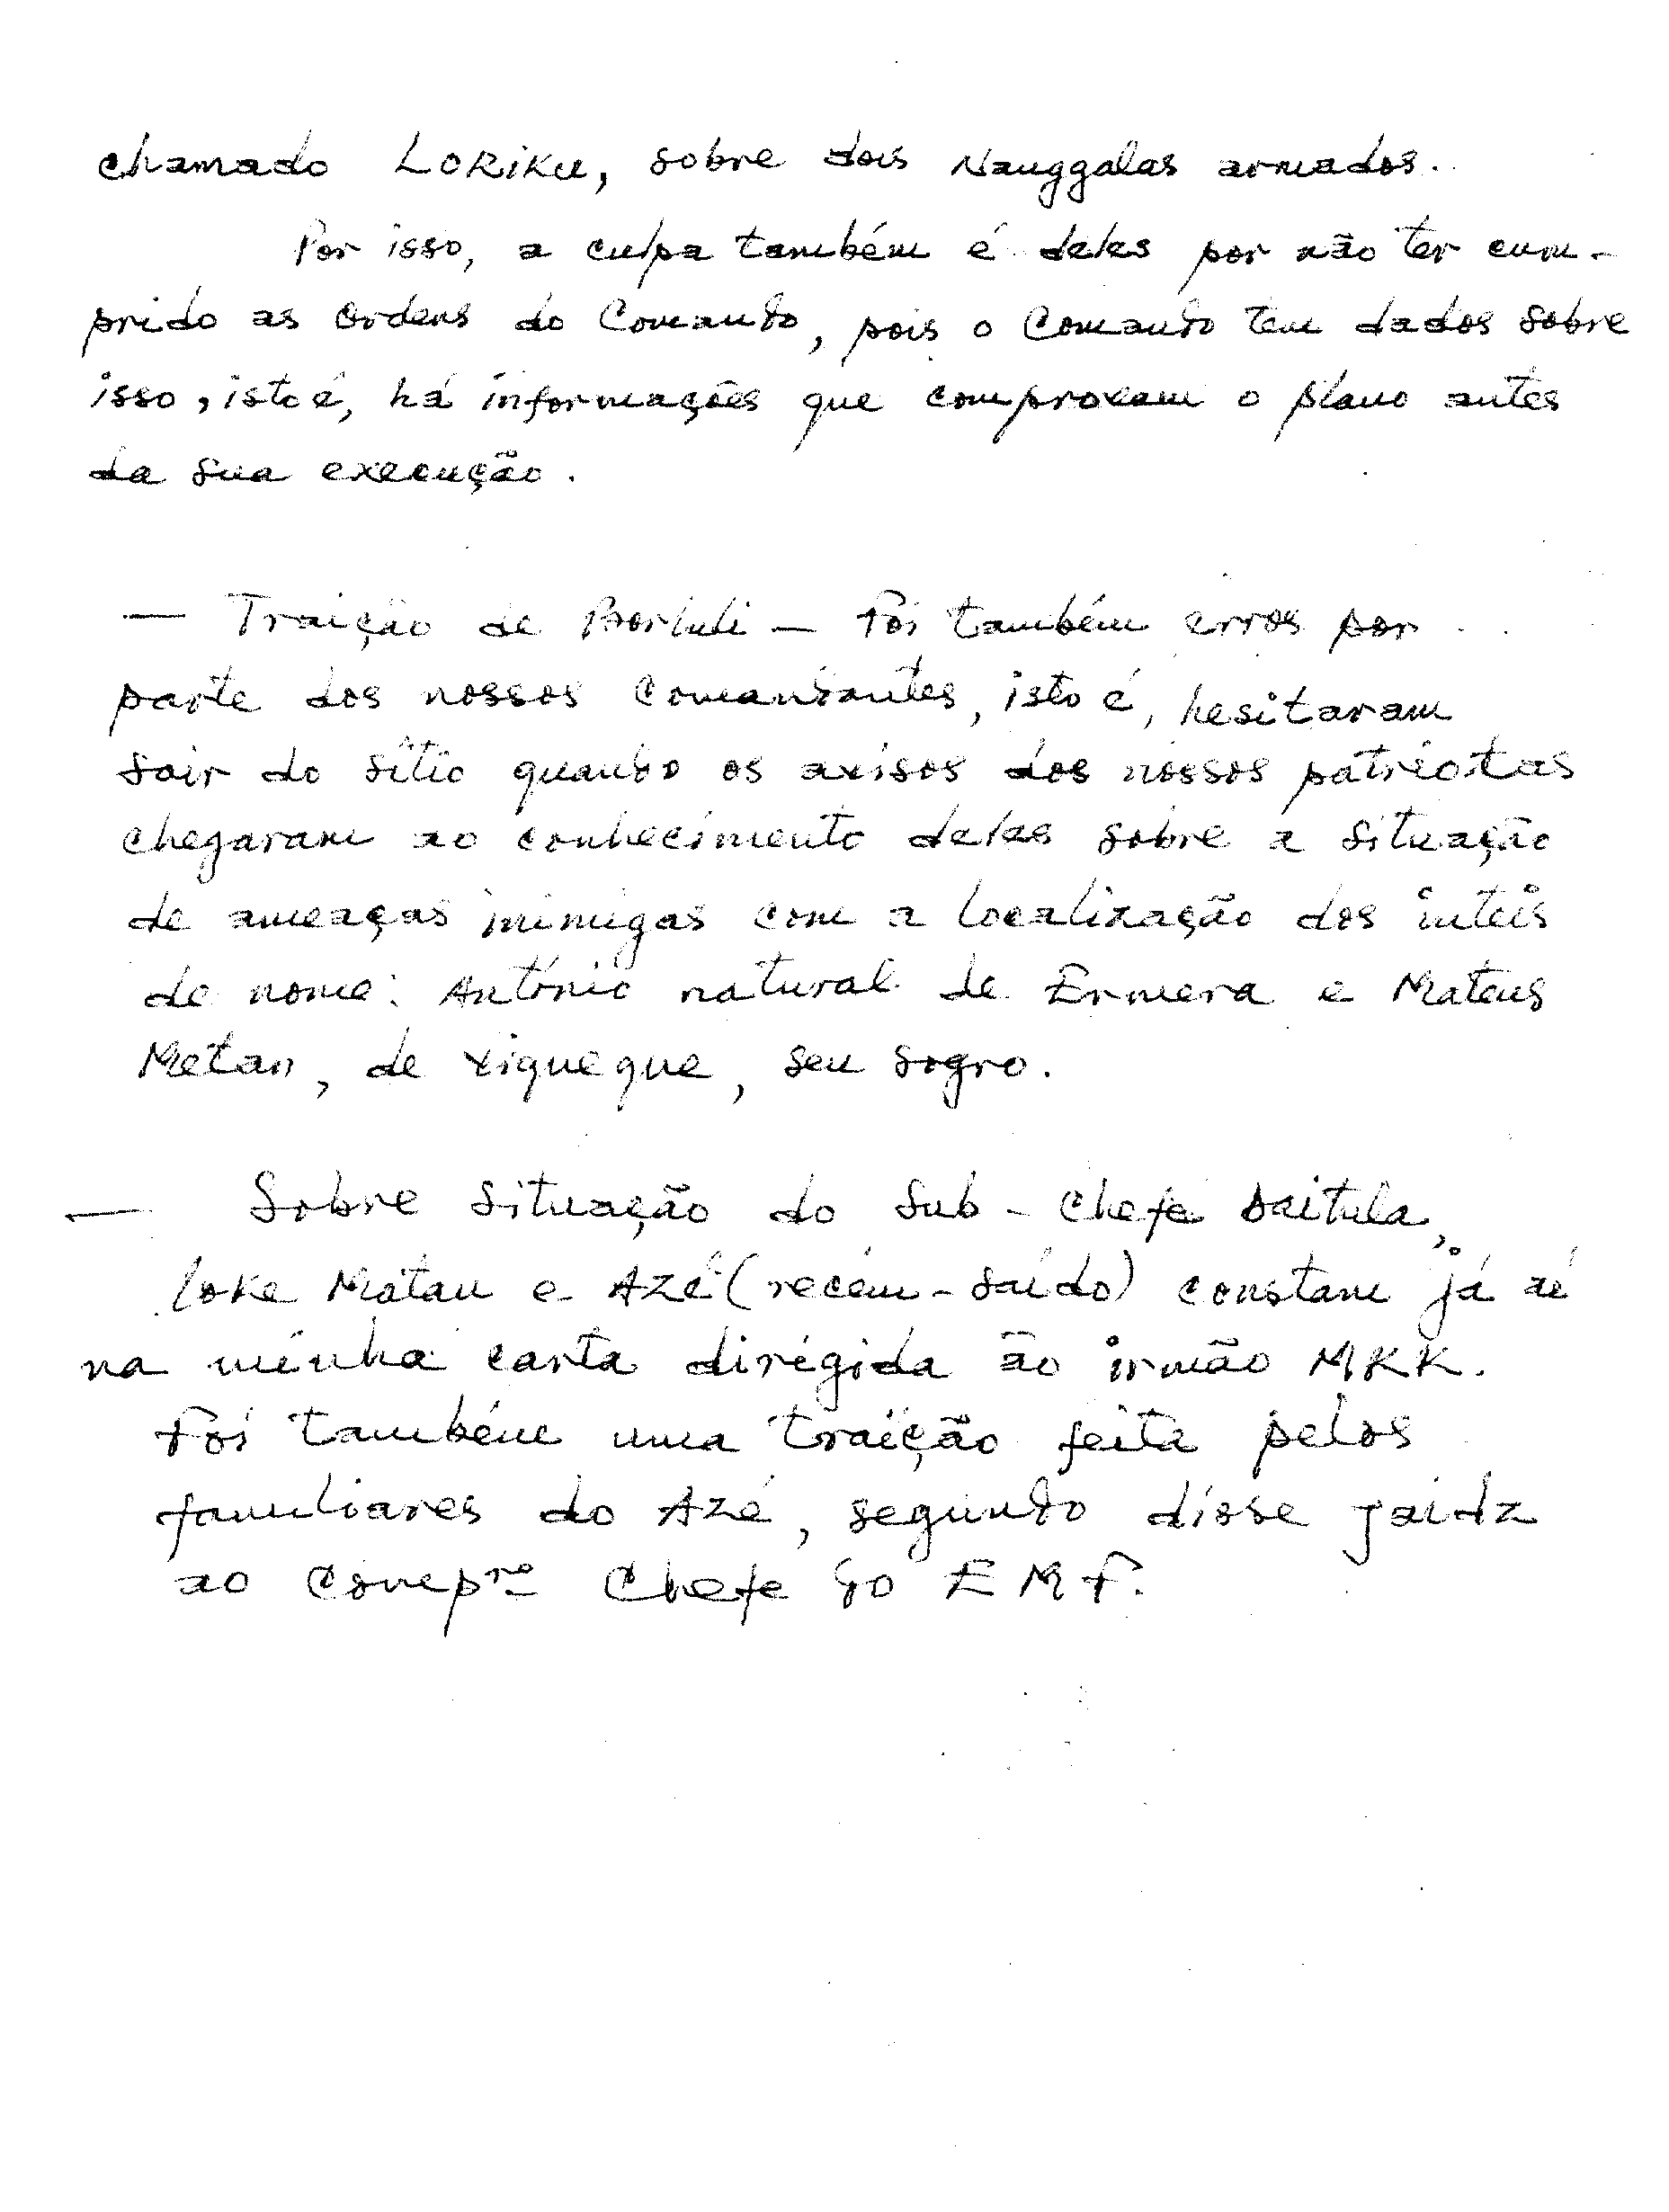 chamado LORIKU, sobre dois Nanggalas armados.
Por isso, a culpa também é deles por não ter cum-
prido as ordens do Comando, pois o Comando tem dados sobre
isso, isto é, há informações que comprovam o plano antes
da sua execução.
— Traição de - Foi também erros por
parte dos nossos comandantes, isto é, hesitaram
sair do sítio quando os avisos dos nossos patriotas
chegaram ao conhecimento deles sobre a situação
de ameaças inimigas com a localização dos inteis
de nome: António natural de Ermera e Mateus
Metan, de Viqueque, seu sogro.
— Sobre situação do Sub-Chefe Daitula,
Loke Matan e Azé (recém-saído) constam já aí
na minha carta dirigida ao irmão MKK.
Foi também uma traição feita pelos
familiares do Azé, segundo disse
ao Compre Chefe do EMF.